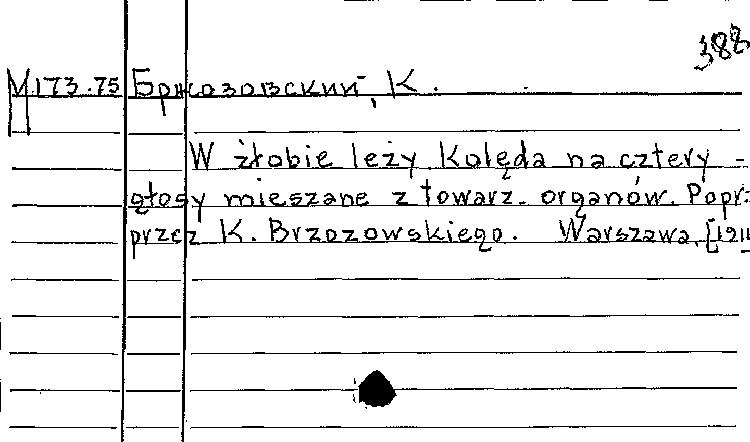 388
М173.75 Бржозовский, К.
W żłobie leży. Kolęda na cztery -
głosy mieszane z towarz. organów. Popr.
przez K. Brzozowskiego. Warszawa, [1911